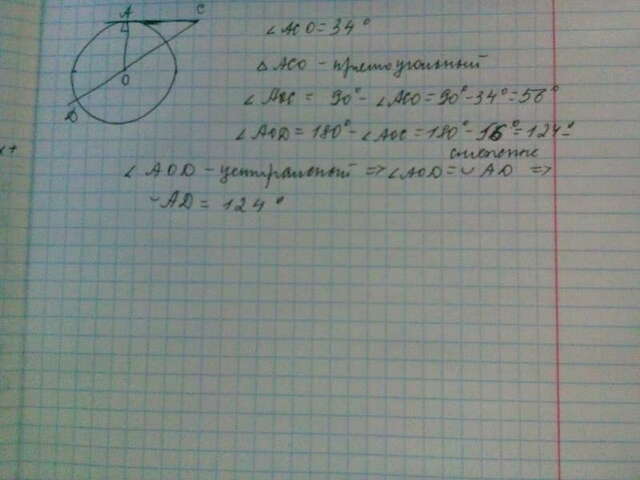 A C
O
D
∠ACO = 34°
△ACO - прямоугольный
∠AOC = 90° - ∠ACO = 90° - 34° = 56°
∠AOD = 180° - ∠AOC = 180° - 56° = 124° -
смежные
∠AOD - центральный => ∠AOD = ◡AD =>
◡AD = 124°